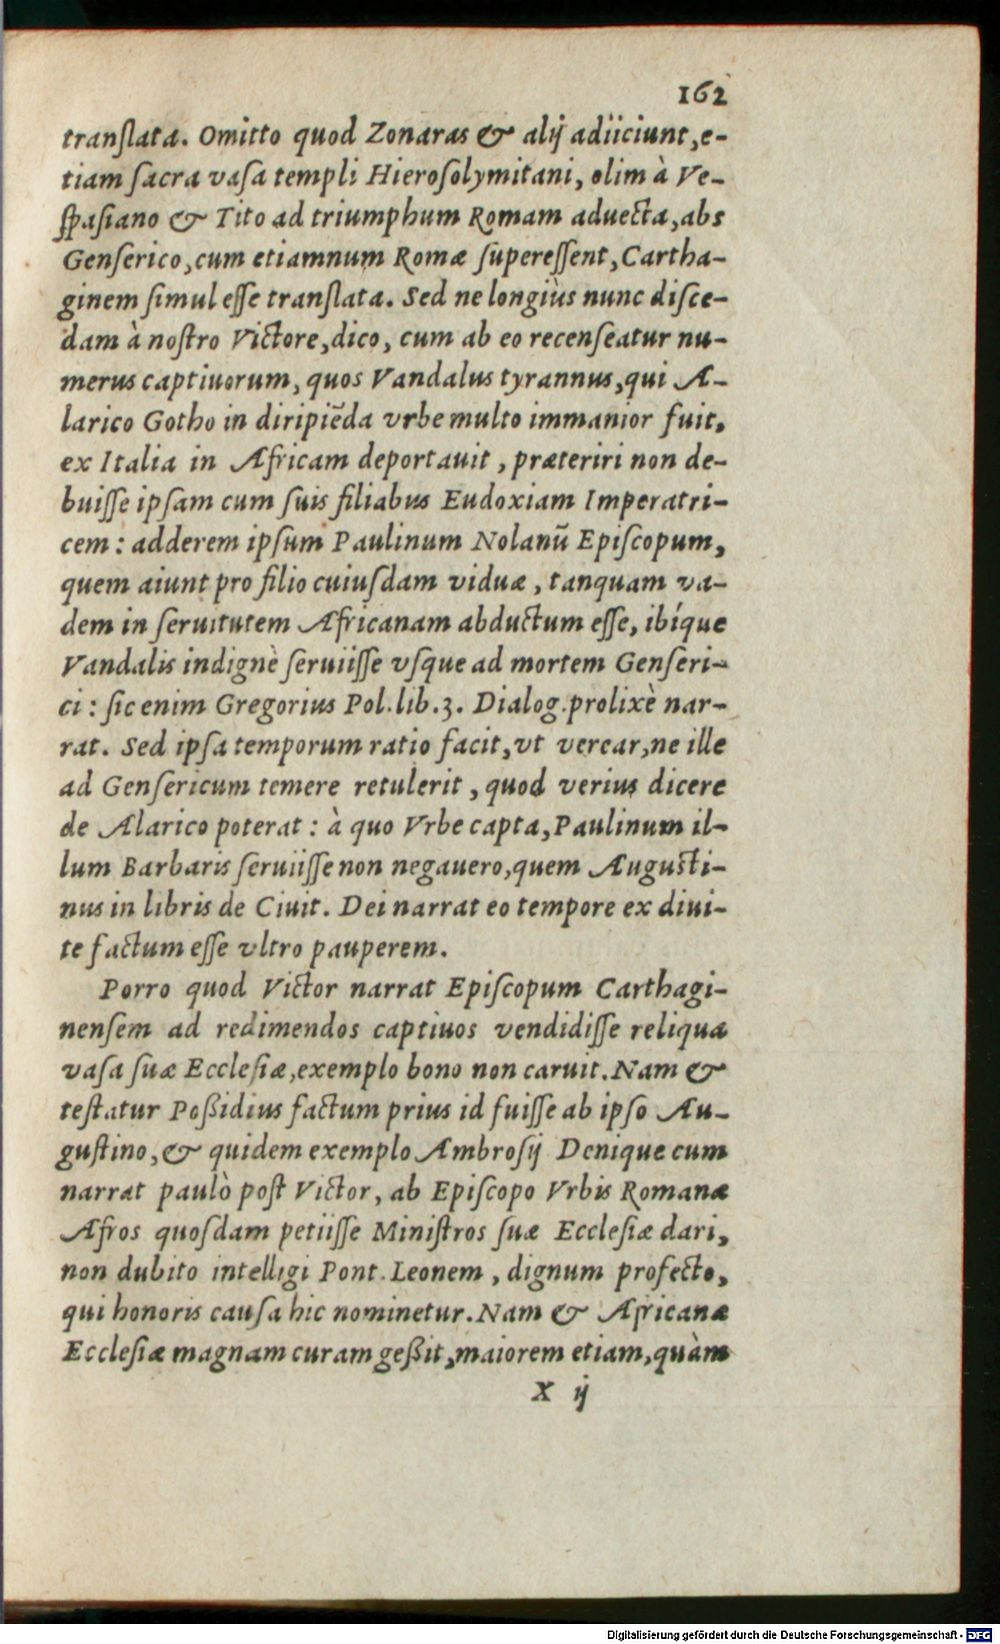 162
translata. Omitto quod Zonaras & alij adiiciunt, e-
tiam sacra vasa templi Hierosolymitani, olim à Ve-
spasiano & Tito ad triumphum Romam aduecta, abs
Genserico, cum etiamnum Romæ superessent, Cartha-
ginem simul esse translata. Sed ne longiùs nunc disce-
dam à nostro Victore, dico, cum ab eo recenseatur nu-
merus captiuorum, quos Vandalus tyrannus, qui A-
larico Gotho in diripiẽda vrbe multo immanior fuit,
ex Italia in Africam deportauit, præteriri non de-
buisse ipsam cum suis filiabus Eudoxiam Imperatri-
cem: adderem ipsum Paulinum Nolanũ Episcopum,
quem aiunt pro filio cuiusdam viduæ, tanquam va-
dem in seruitutem Africanam abductum esse, ibíque
Vandalis indignè seruiisse vsque ad mortem Genseri-
ci: sic enim Gregorius Pol. lib. 3. Dialog. prolixè nar-
rat. Sed ipsa temporum ratio facit, vt verear, ne ille
ad Gensericum temere retulerit, quod verius dicere
de Alarico poterat: à quo Vrbe capta, Paulinum il-
lum Barbaris seruiisse non negauero, quem Augusti-
nus in libris de Ciuit. Dei narrat eo tempore ex diui-
te factum esse vltro pauperem.
Porro quod Victor narrat Episcopum Carthagi-
nensem ad redimendos captiuos vendidisse reliqua
vasa suæ Ecclesiæ, exemplo bono non caruit. Nam &
testatur Poßidius factum prius id fuisse ab ipso Au-
gustino, & quidem exemplo Ambrosij Denique cum
narrat paulò post Victor, ab Episcopo Vrbis Romanæ
Afros quosdam petiisse Ministros suæ Ecclesiæ dari,
non dubito intelligi Pont. Leonem, dignum profecto,
qui honoris causa hic nominetur. Nam & Africanæ
Ecclesiæ magnam curam geßit, maiorem etiam, quàm
X ij
Digitalisierung gefördert durch die Deutsche Forschungsgemeinschaft - DFG